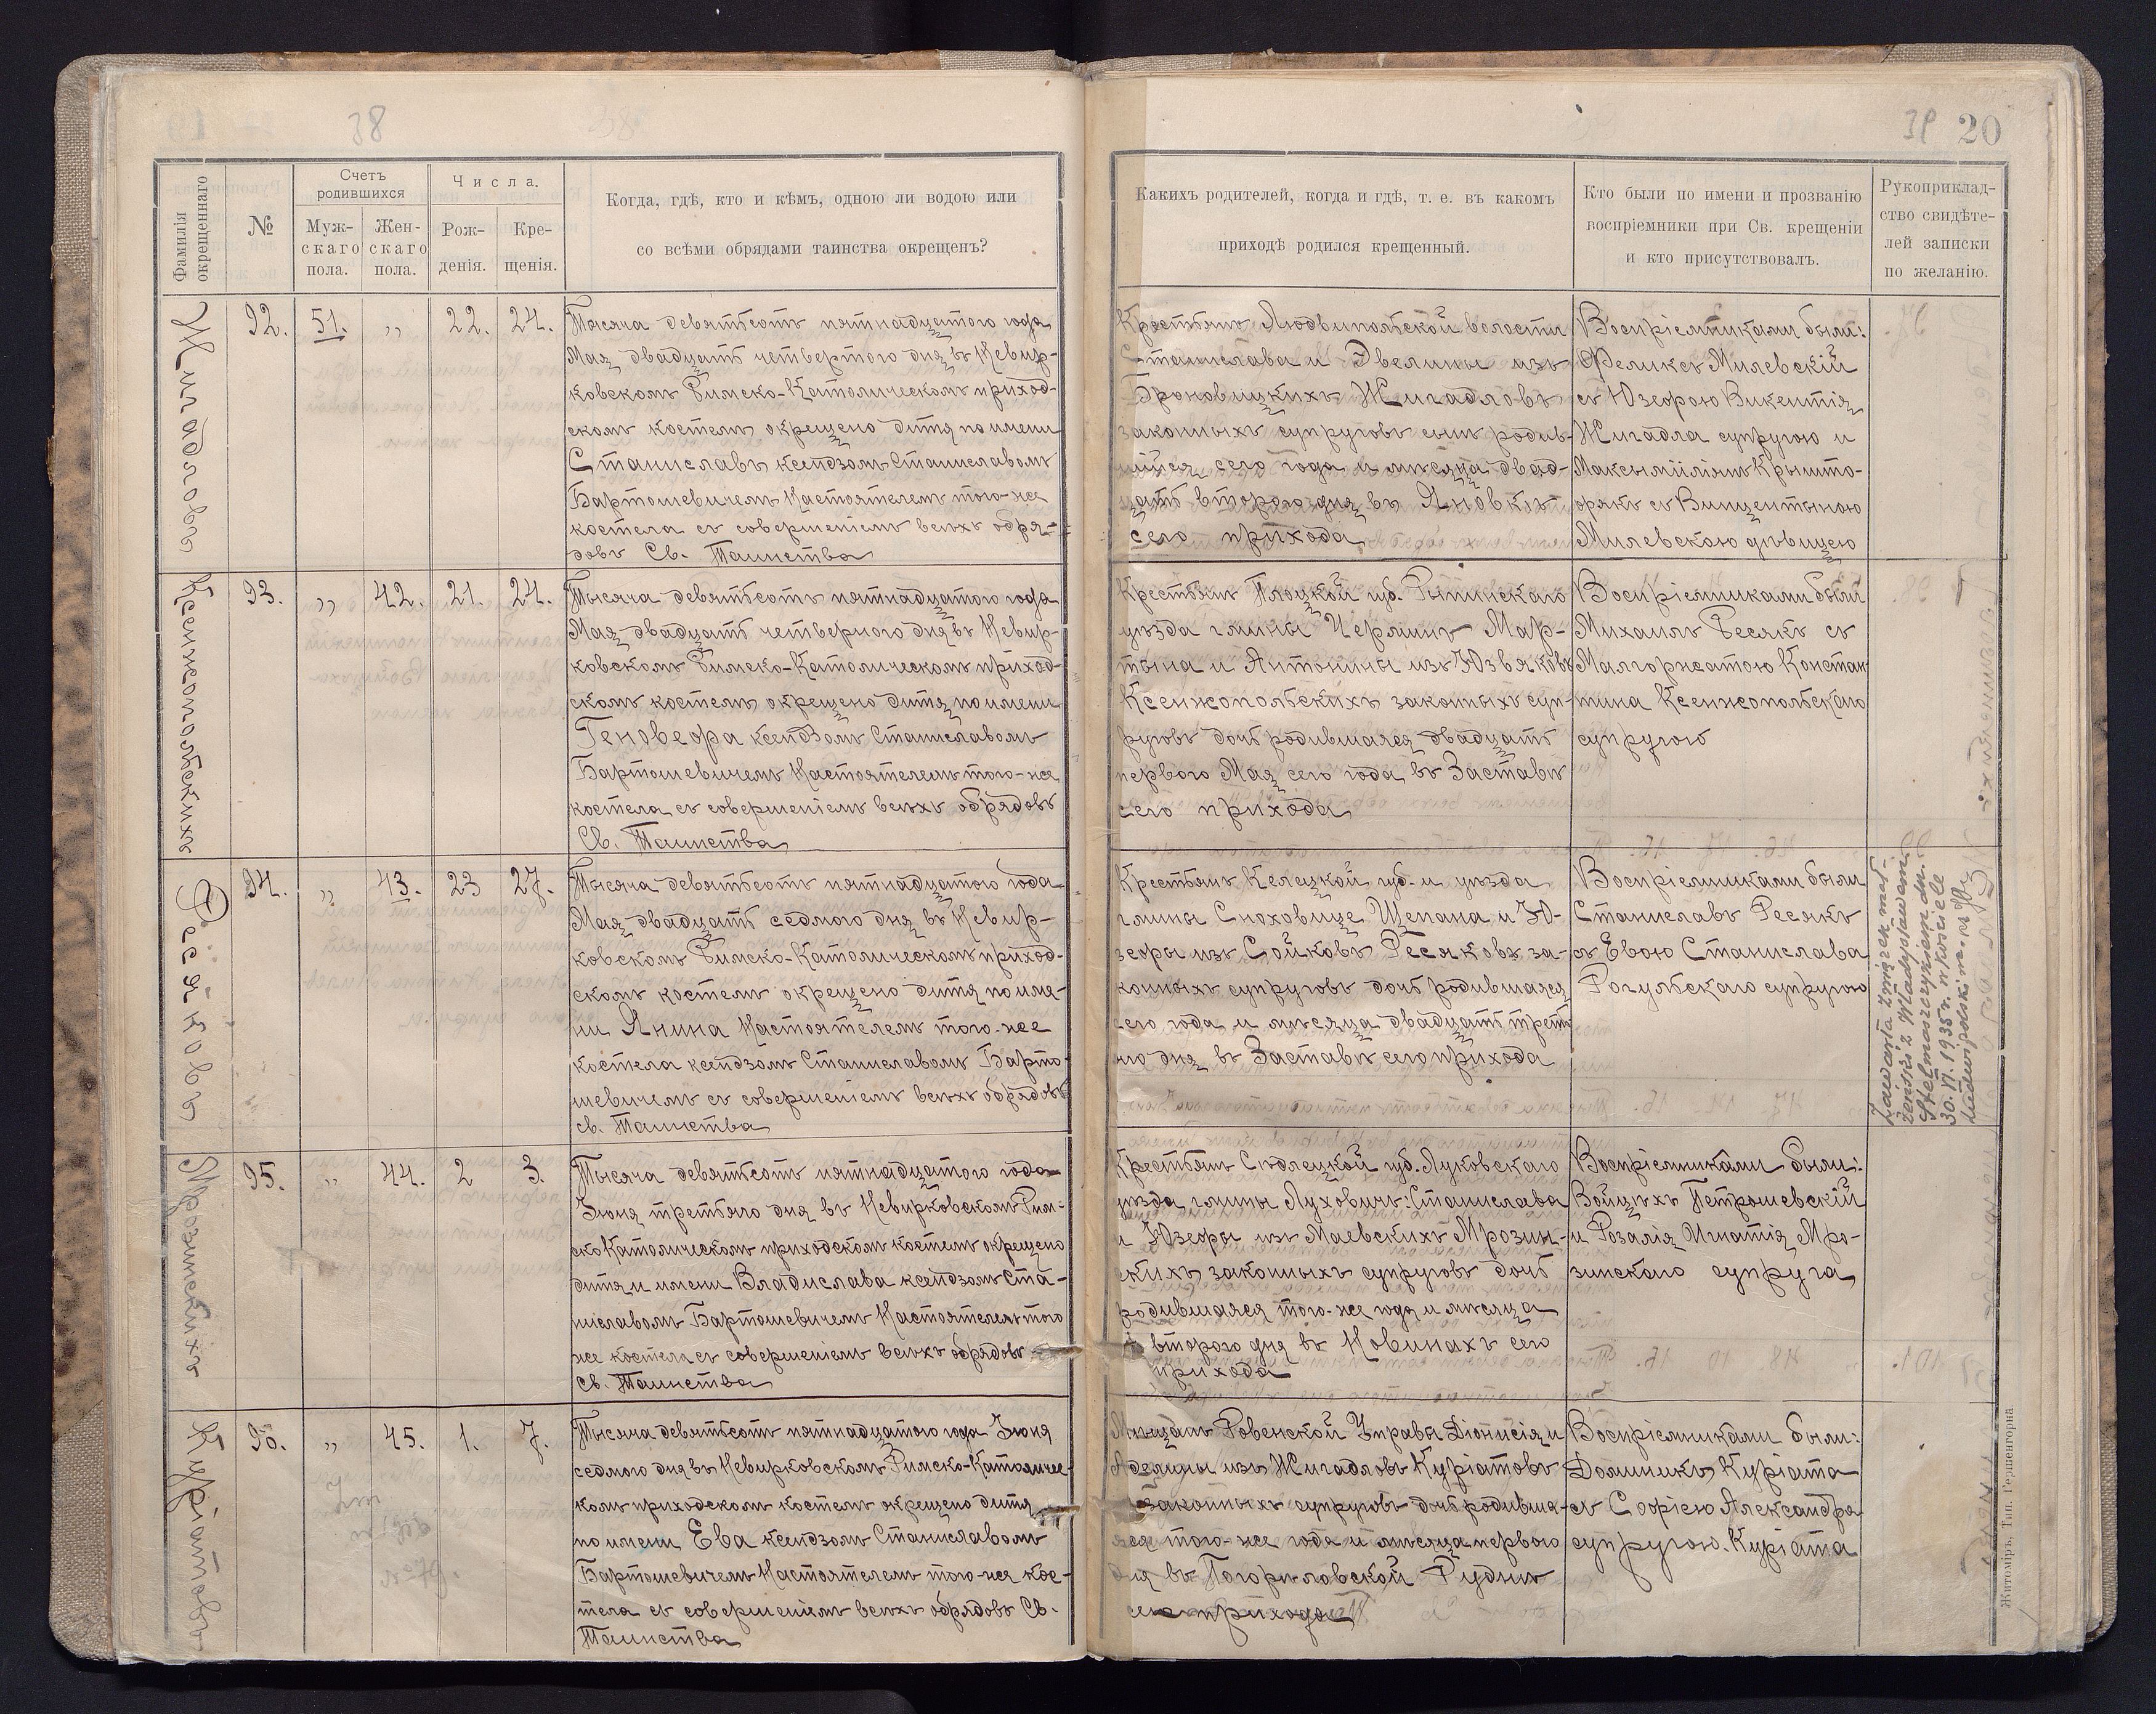 38
Фамилія окрещеннаго
№
Счетъ родившихся
Мужскаго пола.
Женскаго пола.
Числа.
Рожденія.
Крещенія.
Когда, гдѣ, кто и кѣмъ, одною ли водою или
со всѣми обрядами таинства окрещенъ?
Жигадловъ
92.
51.
„
22.
24.
Тысяча девятьсотъ пятнадцатого года
Мая двадцать четвертого дня въ Невир-
ковскомъ Римско-Католическомъ приход-
скомъ костелѣ окрещено дитя по имени
Станиславъ ксендзомъ Станиславомъ
Бартошевичемъ Настоятелемъ того-же
костела съ совершеніемъ всѣхъ обря-
довъ Св. Таинства
Ксенжопольскихъ
93.
„
42.
21.
24.
Тысяча девятьсотъ пятнадцатого года
Мая двадцать четвертого дня въ Невир-
ковскомъ Римско-Католическомъ приход-
скомъ костелѣ окрещено дитя по имени
Геновефа ксендзомъ Станиславомъ
Бартошевичемъ Настоятелемъ того-же
костела съ совершеніемъ всѣхъ обрядовъ
Св. Таинства
Ресяковъ
94.
„
43.
23
27.
Тысяча девятьсотъ пятнадцатого года
Мая двадцать седмого дня въ Невир-
ковскомъ Римско-Католическомъ приход-
скомъ костелѣ окрещено дитя по име-
ни Янина Настоятелемъ того-же
костела ксендзомъ Станиславомъ Барто-
шевичемъ съ совершеніемъ всѣхъ обрядовъ
св. Таинства
Мрозинскихъ
95.
„
44.
2
3.
Тысяча девятьсотъ пятнадцатого года
Іюня третьяго дня въ Невирковскомъ Рим-
ско Католическомъ приходскомъ костелѣ окрещено
дитя и имени Владислава ксендзомъ Ста-
ниславомъ Бартошевичемъ Настоятелемъ того
же костела съ совершеніемъ всѣхъ обрядовъ
Св. Таинства
Куріатовъ
96.
„
45.
1.
7.
Тысяча девятьсотъ пятнадцатого года Іюня
седмого дня въ Невирковскомъ Римско-Католичес-
комъ приходскомъ костелѣ окрещено дитя
по имени Ева ксендзомъ Станиславомъ
Бартошевичемъ Настоятелемъ того-же кос-
тела съ совершеніемъ всѣхъ обрядовъ Св.
Таинства
39
20
Какихъ родителей, когда и гдѣ, т. е. въ какомъ
приходѣ родился крещенный.
Кто были по имени и прозванію
воспріемники при Св. крещеніи
и кто присутствовалъ.
Рукоприклад-
ство свидѣте-
лей записки
по желанію.
Крестьянъ Людвипольской волости
Станислава и Эвелины изъ
Броновицкихъ Жигадловъ
законныхъ супруговъ сынъ родив-
шійся сего года и мѣсяца двад-
цать второго дня въ Яновкѣ
сего прихода
Воспріемниками были:
Феликсъ Милевскій
съ Юзефою Викентія
Жигадла супругою и
Максыміліянъ Крышто-
фякъ съ Винцентыною
Милевскою дѣвицею
Крестьянъ Плоцкой губ. Рыпинскаго
уѣзда гмины Черминъ Мар-
тына и Антонины изъ Юзвяковъ
Ксенжопольскихъ законныхъ суп-
руговъ дочь родившаяся двадцать
первого Мая сего года въ Заставѣ
сего прихода
Воспріемниками были
Михаилъ Ресякъ съ
Малгоржатою Констан-
тина Ксенжопольскаго
супругою
Крестьянъ Келецкой губ. и уѣзда
гмины Сноховице Щепана и Ю-
зефы изъ Сойковъ Ресяковъ за-
конныхъ супруговъ дочь родившаяся
сего года и мѣсяца двадцать треть-
яго дня въ Заставѣ сего прихода
Воспріемниками были
Станиславъ Ресякъ
съ Евою Станислава
Рогульскаго супругою
Zawarła związek mał-
żeński z Władysławem
Stelmaszczykiem dn.
30.VI.1935 r. w kościele
Ludwipolskim.
Крестьянъ Сѣдлецкой губ. Луковскаго
уѣзда гмины Луховичъ: Станислава
и Юзефы изъ Маевскихъ Мрозин-
скихъ законныхъ супруговъ дочь
родившаяся того-же года и мѣсяца
второго дня въ Новинахъ сего
прихода
Воспріемниками были:
Войцѣхъ Петрошевскій
и Розалія Игнатія Мро-
зинскаго супруга
Мѣщанъ Ровенской Управы Діонисія и
Аделины изъ Жигадловъ Куріатовъ
законныхъ супруговъ дочь родивша-
яся того-же года и мѣсяца первого
дня въ Погориловской Руднѣ
сего прихода
Воспріемниками были:
Доминикъ Куріата
съ Софіею Александра
супругою Куріата
Житоміръ, Тип. Гершенгорна